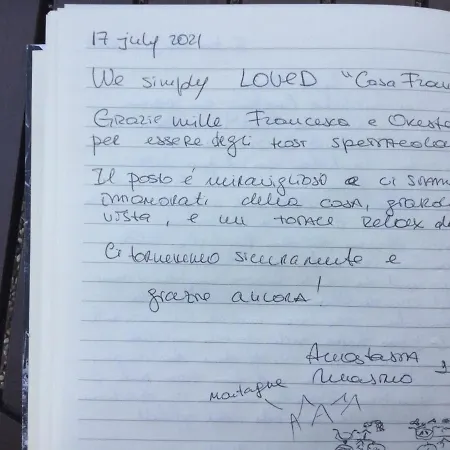 17 july 2021
We simply LOVED "Casa Fran
Grazie mille Francesca e Oreste
per essere degli host spettacola
Il posto é meraviglioso e ci siamo
innamorati della casa, giard
vista, e un totale relax d
Ci torneremo sicuramente e
grazie ancora!
Anastasia
montagne